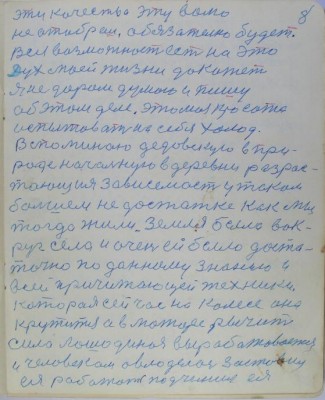 эти качества эту волю 8
не отобрал. обязательно будет.
Вся возможност ест на это
Дух моей жизни докажет
Я не даром думаю и пишу
об этом деле. это моя красота
испытоват на себя холод.
Вспоминаю дедовскую в при-
роде началную в деревни разрас-
тающия зависемост у таком
болшем не достатке как мы
тогда жили. Земля было вок-
руг села и очен ей было доста-
точно по данному знанию и
ей причитающей техники.
которая сейчас на колесе она
крутится а в моторе рычит
сила лошодиная вырабатовается
и человеком овлоделая
ея работат подчиняя ея